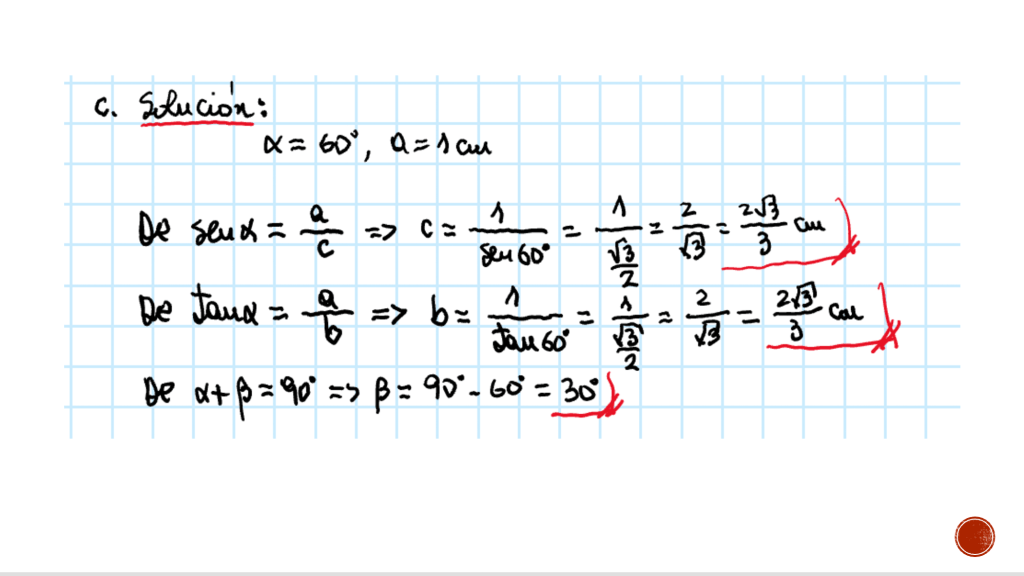 c. Solución:
α = 60°, a = 1 cm
De sen α = a/c => c = 1/sen 60° = 1/(√3/2) = 2/√3 = 2√3/3 cm
De tan α = a/b => b = 1/tan 60° = 1/(√3/2) = 2/√3 = 2√3/3 cm
De α + β = 90° => β = 90° - 60° = 30°